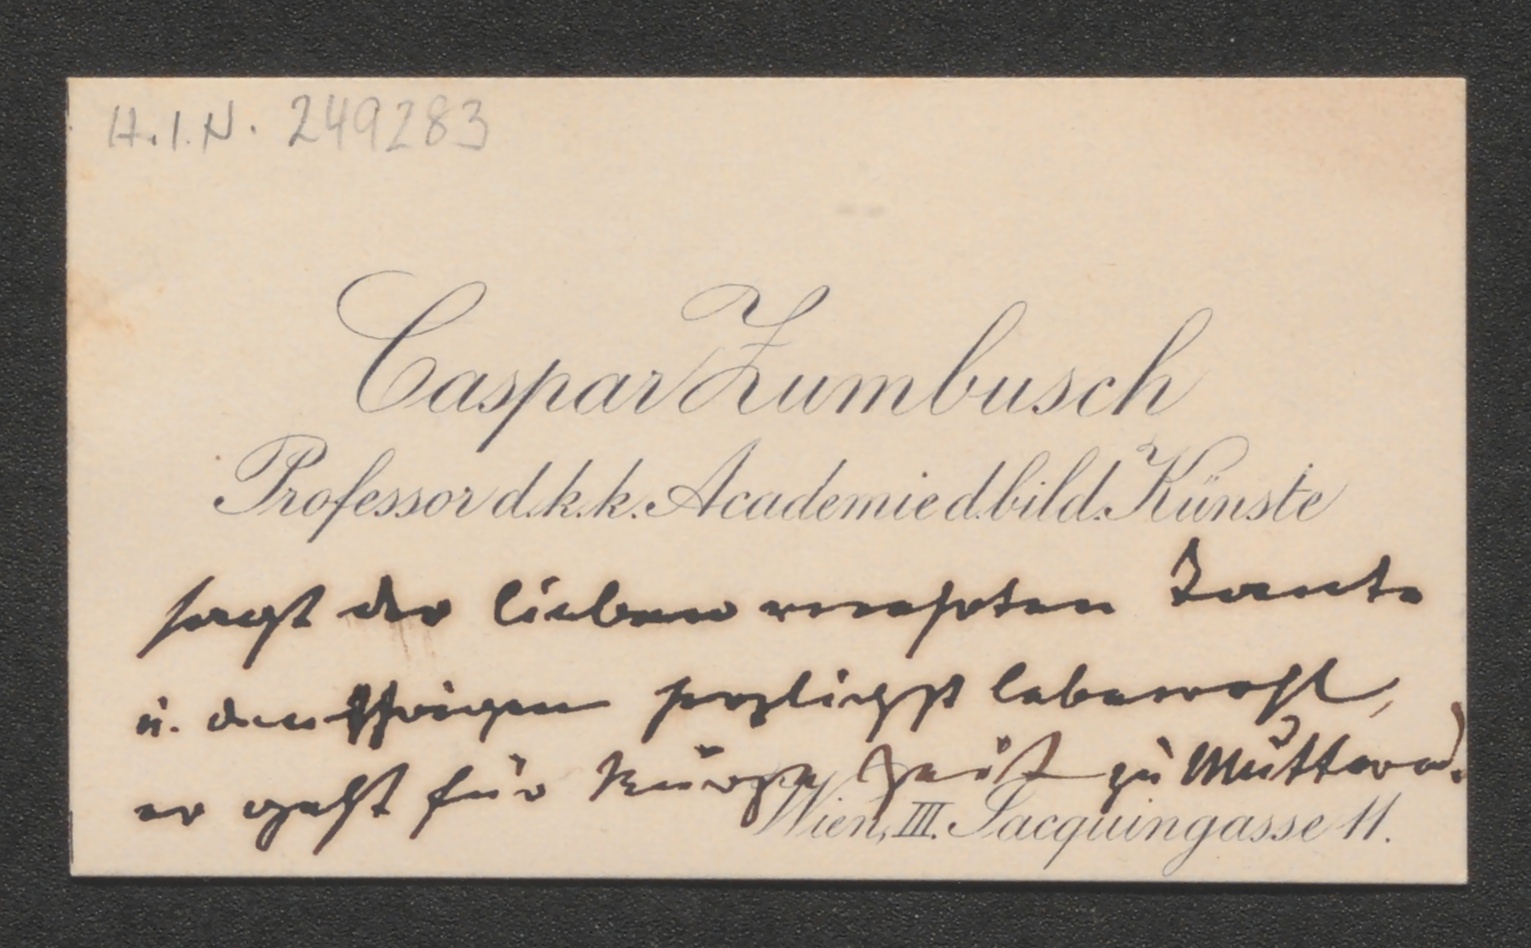 H.I.N. 249283
Caspar Zumbusch
Professor d. k. k. Academie d. bild. Künste
sagt der lieben verehrten Tante
u. den Ihrigen herzlichst lebewohl,
er geht für kurze Zeit zu Muttern.
Wien, III. Jacquingasse 11.